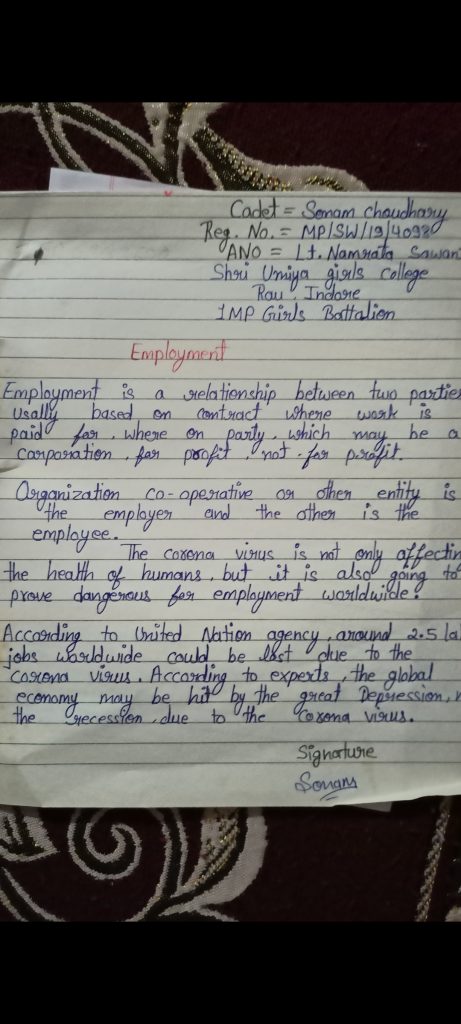 Cadet = Sonam choudhary
Reg. No. = MP/SW/19/4093
ANO = Lt. Namrata Sawan
Shri Umiya girls college
Rau, Indore
1MP Girls Battalion
Employment
Employment is a relationship between two partie
Usally based on contract where work is
paid for, where on party, which may be a
carporation, for profit, not-for profit.
Organization co-operative or other entity is
the employer and the other is the
employee.
The corona virus is not only affectin
the health of humans, but it is also going to
prove dangerous for employment worldwide.
According to United Nation agency, around 2.5 la
jobs worldwide could be lost due to the
corona virus. According to experts, the global
economy may be hit by the great Depression,
the recession, due to the Corona virus.
Signature
Sonam